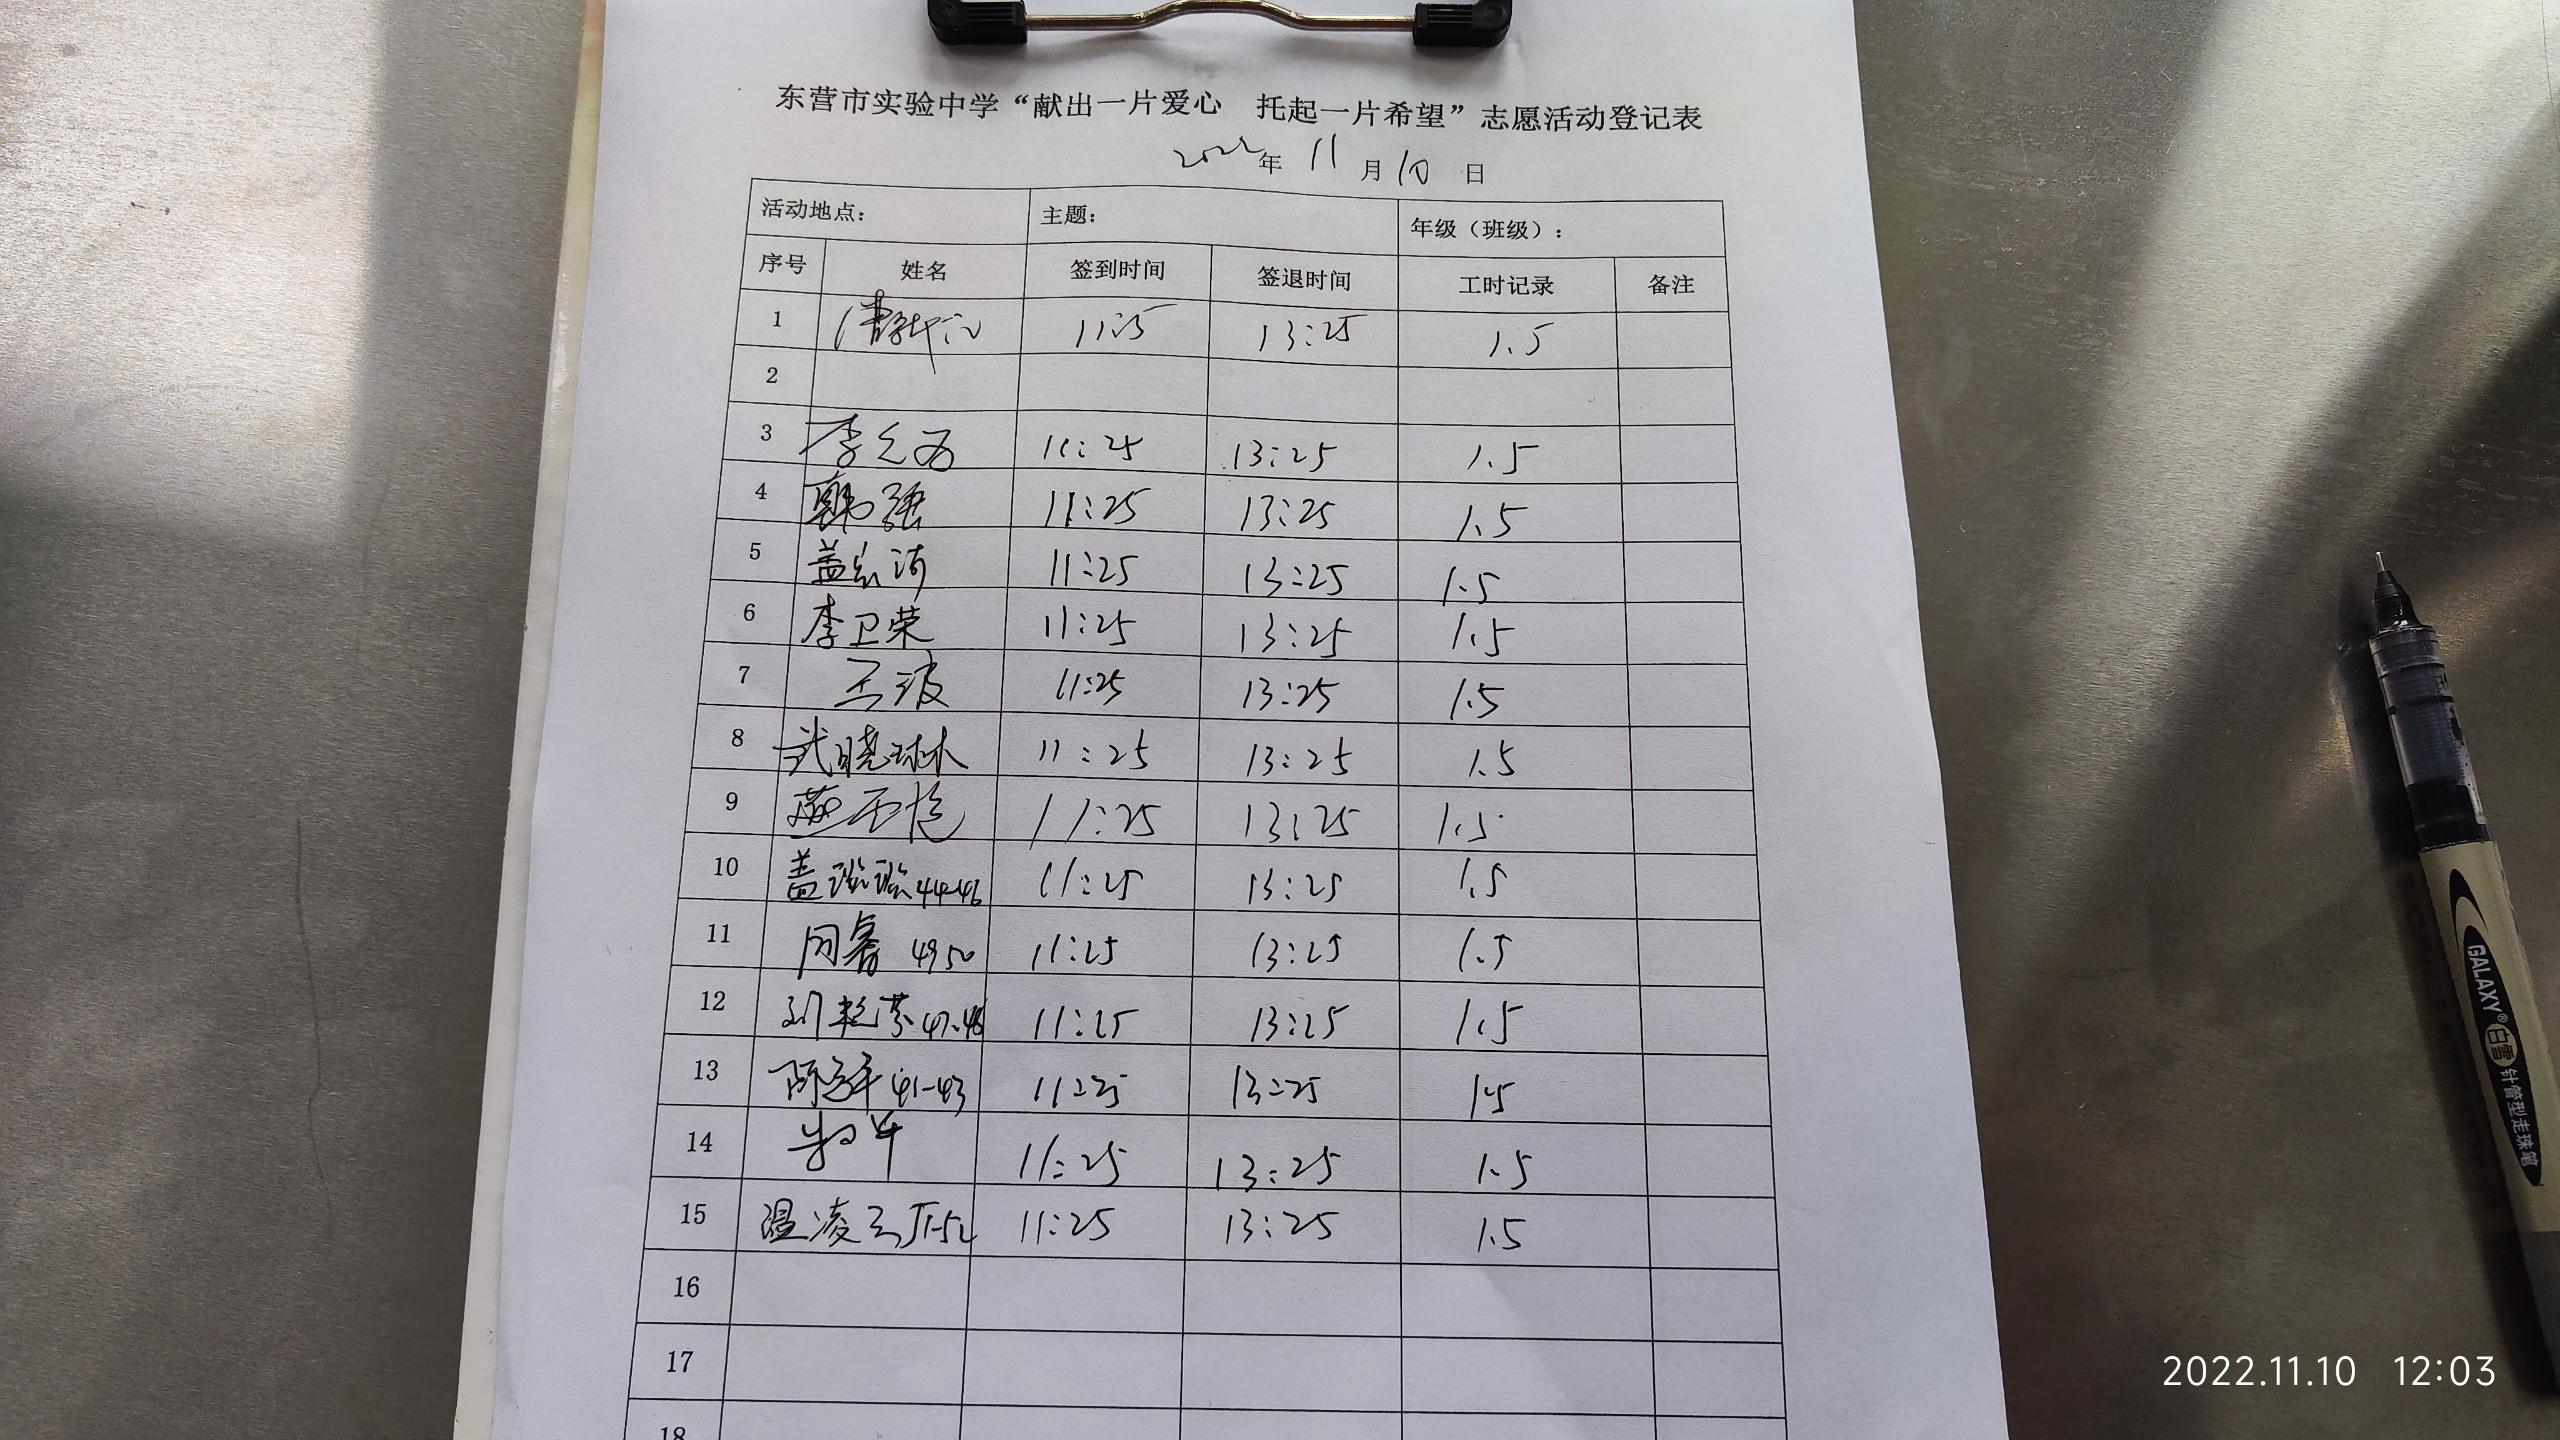 东营市实验中学“献出一片爱心 托起一片希望”志愿活动登记表
2022年 11月10日
活动地点： 主题： 年级（班级）：
序号 姓名 签到时间 签退时间 工时记录 备注
1 13:25 1.5
2
3 李 11:25 13:25 1.5
4 韩强 11:25 13:25 1.5
5 盖 11:25 13:25 1.5
6 李卫荣 11:25 13:25 1.5
7 王波 11:25 13:25 1.5
8 武晓琳 11:25 13:25 1.5
9 11:25 13:25 1.5
10 盖 44-46 11:25 13:25 1.5
11 4950 11:25 13:25 1.5
12 刘艳芬 47-48 11:25 13:25 1.5
13 41-43 11:25 13:25 1.5
14 11:25 13:25 1.5
15 温凌云 51-52 11:25 13:25 1.5
16
17
18
GALAXY® 白雪 针管型走珠笔
2022.11.10 12:03